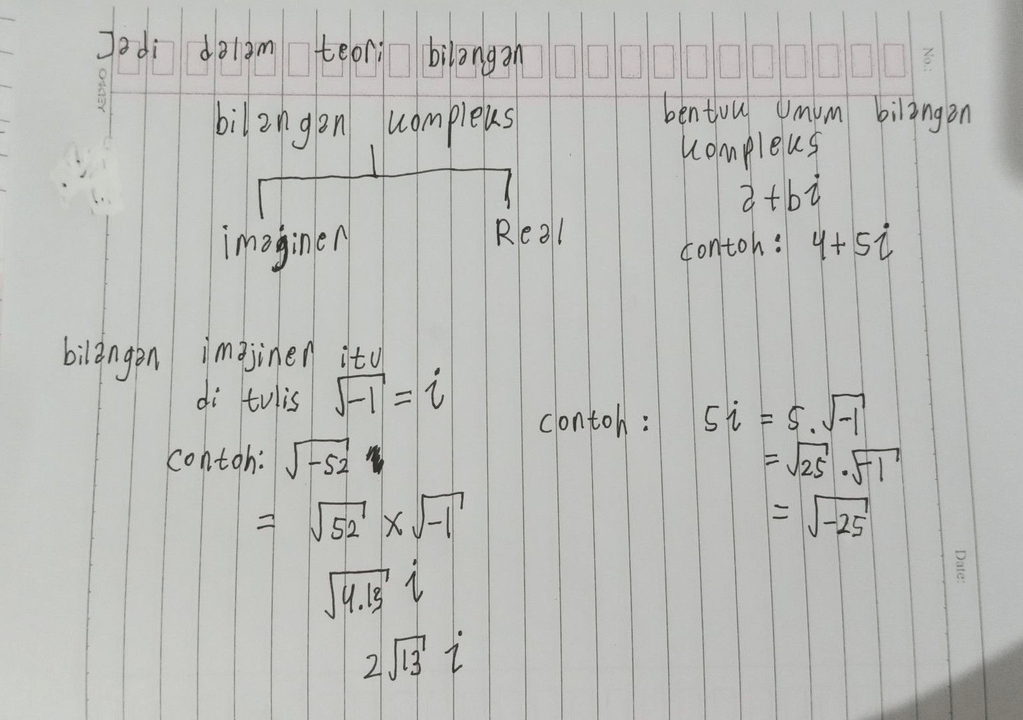 Jadi dalam teori bilangan
No:
OKEY
bilangan kompleks
imajiner Real
bentuk umum bilangan
kompleks
a+bi
contoh: 4+5i
bilangan imajiner itu
di tulis √-1 = i
contoh: √-52
= √52 × √-1
√4.13 i
2√13 i
contoh: 5i = 5.√-1
= √25 . √-1
= √-25
Date: